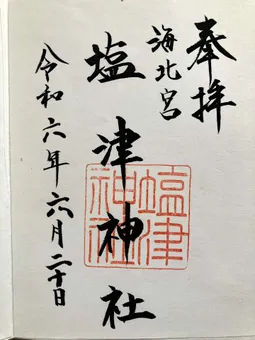 奉拝
海北宮
塩津神社
令和六年六月二十日
塩津
神社